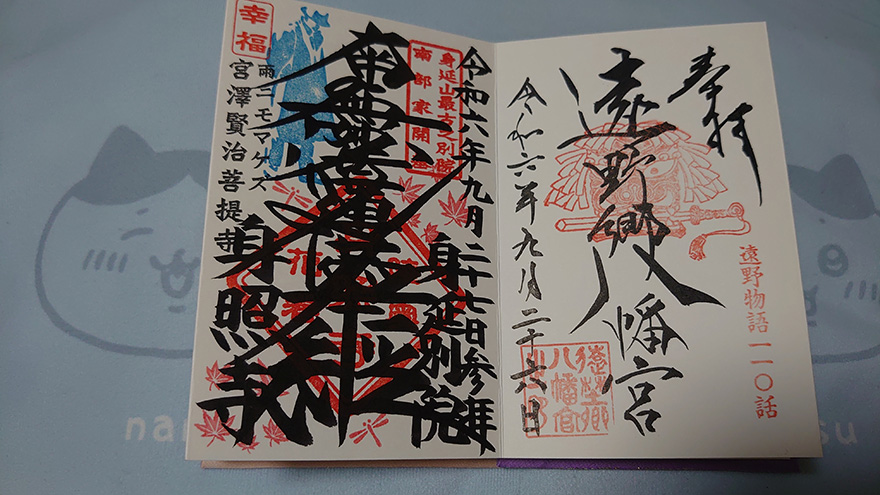 奉拝
遠野物語一一〇話
遠野郷八幡宮
令和六年九月二十六日
令和六年九月二十七日参拝
身延別院
身延山最古之別院
南部家開基
身照寺
雨ニモマケズ
宮澤賢治菩提寺
幸福